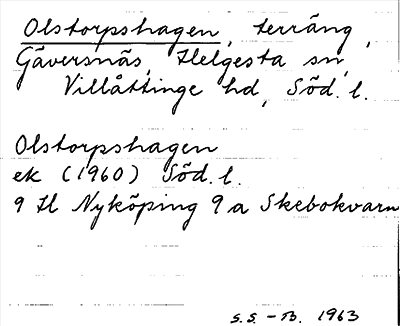 Olstorpshagen, terräng,
Gäversnäs, Helgesta sn,
Villåttinge hd, Söd. l.
Olstorpshagen
ek (1960) Söd. l.
9 H Nyköping 9 a Skebokvarn
S.S. - B. 1963